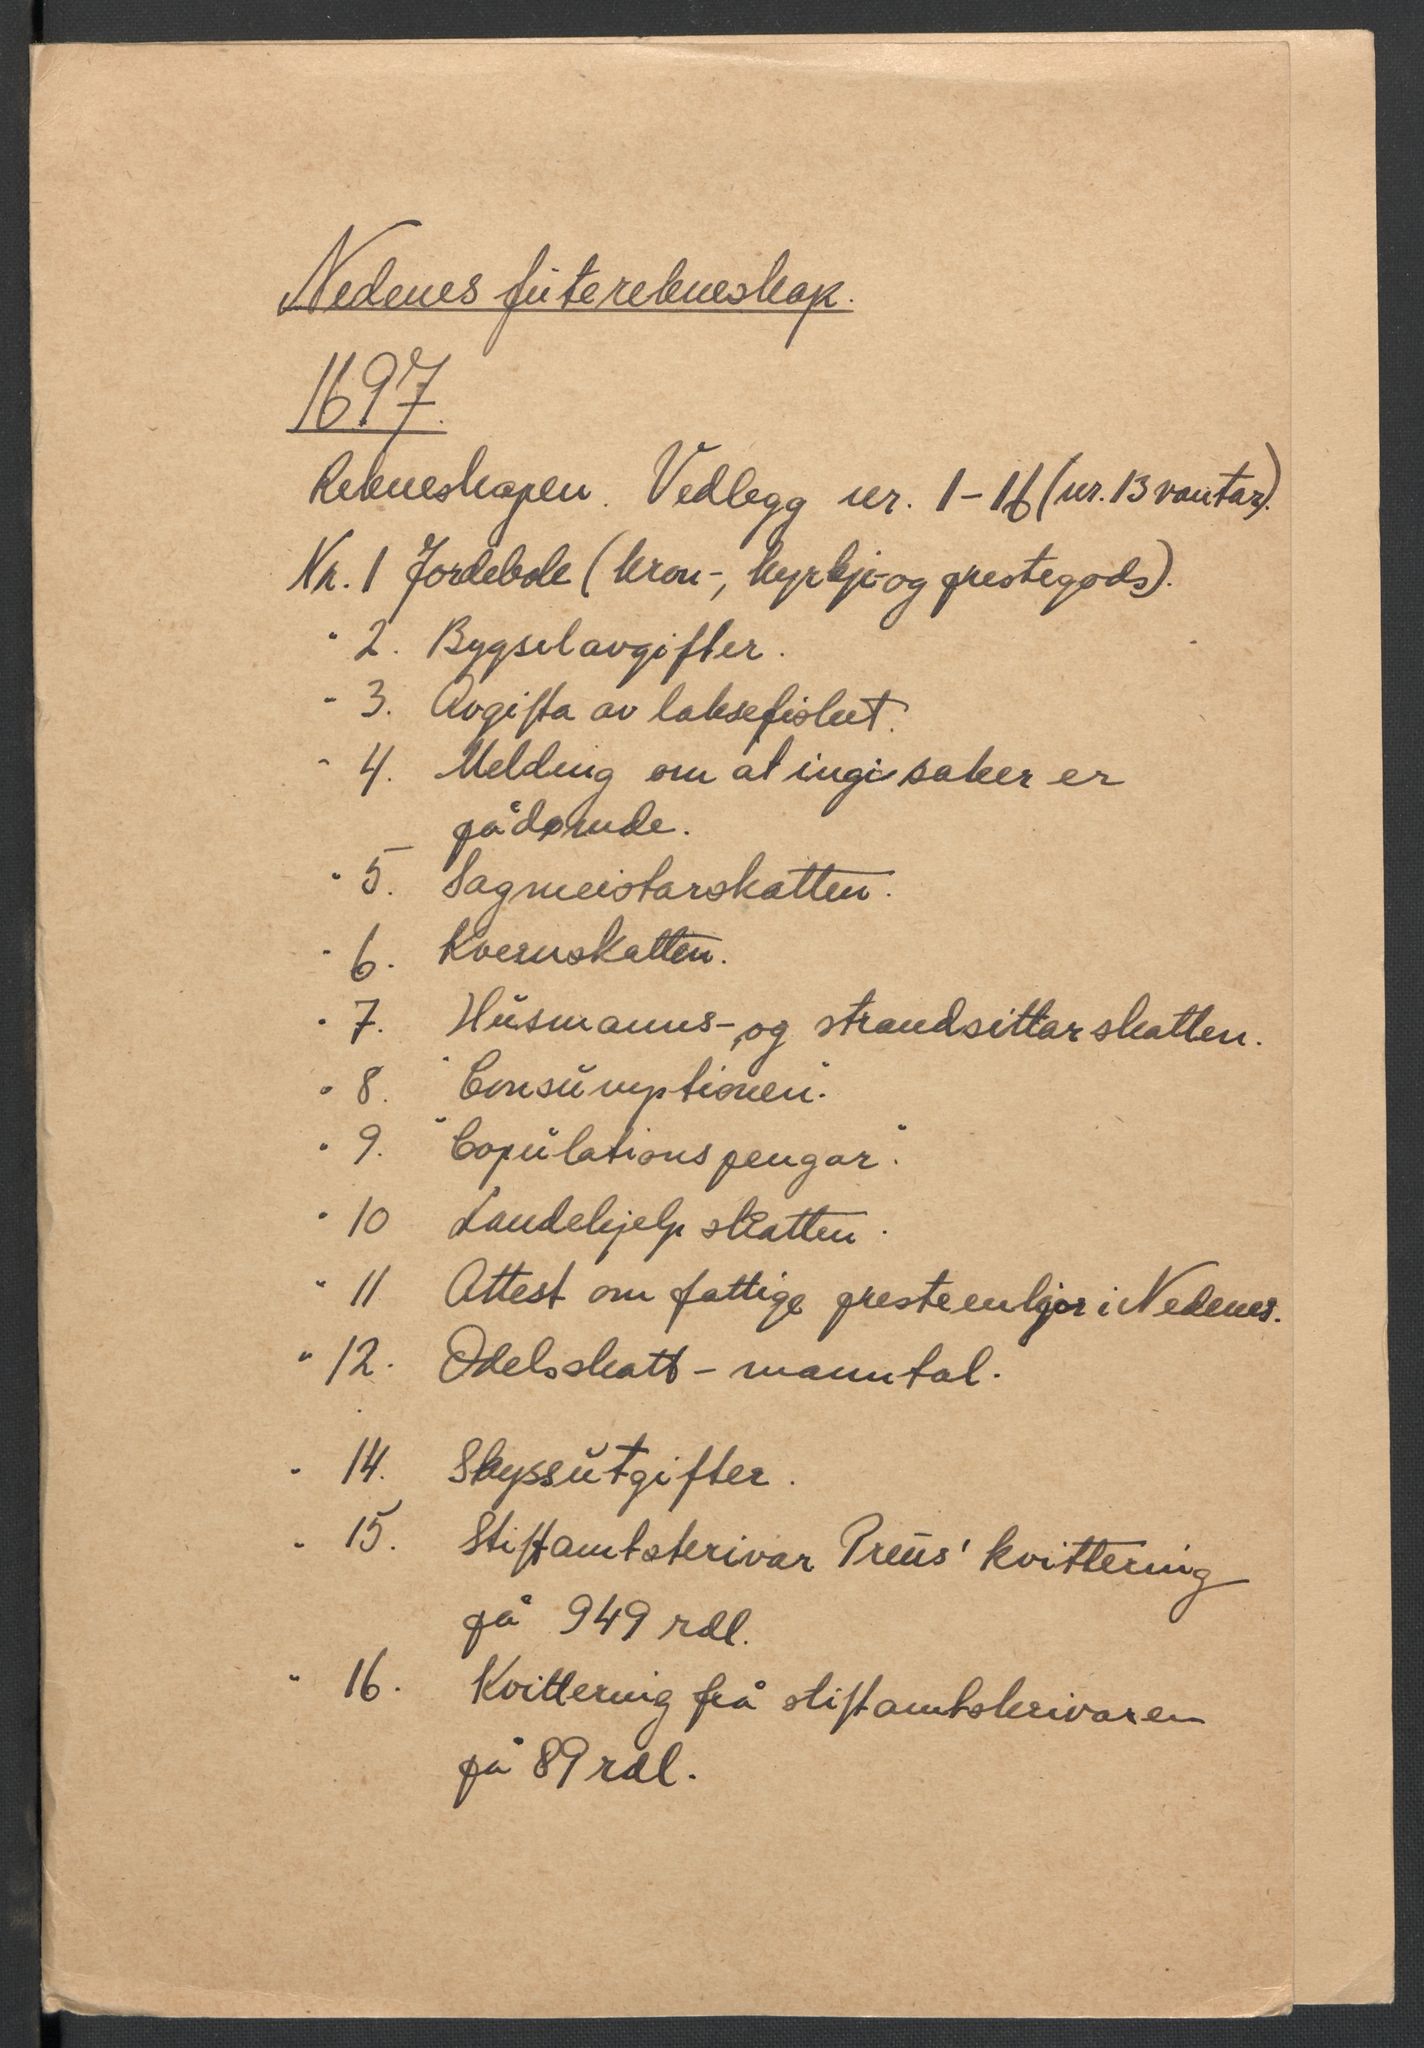 Nedenes futerekneskap.
1697.
Rekneskapen. Vedlegg nr. 1-16 (nr. 13 vantar).
Nr. 1 Jordebok (kron-, kyrkje- og prestegods).
" 2. Bygselavgifter.
" 3. Avgifta av laksefisket.
" 4. Melding om at ingi saker er
pådømde.
" 5. Sagmeistarskatten.
" 6. Kvernskatten.
" 7. Husmanns- og strandsittarskatten.
" 8. "Consumptionen".
" 9. "Copulationspengar".
" 10 Landehjelpskatten.
" 11 Attest om fattige presteenkjor i Nedenes.
" 12. Odelsskatt-manntal.
" 14. Skyssutgifter.
" 15. Stiftamtskrivar Preus' kvittering
på 949 rdl.
" 16. Kvittering frå stiftamtskrivaren
på 89 rdl.